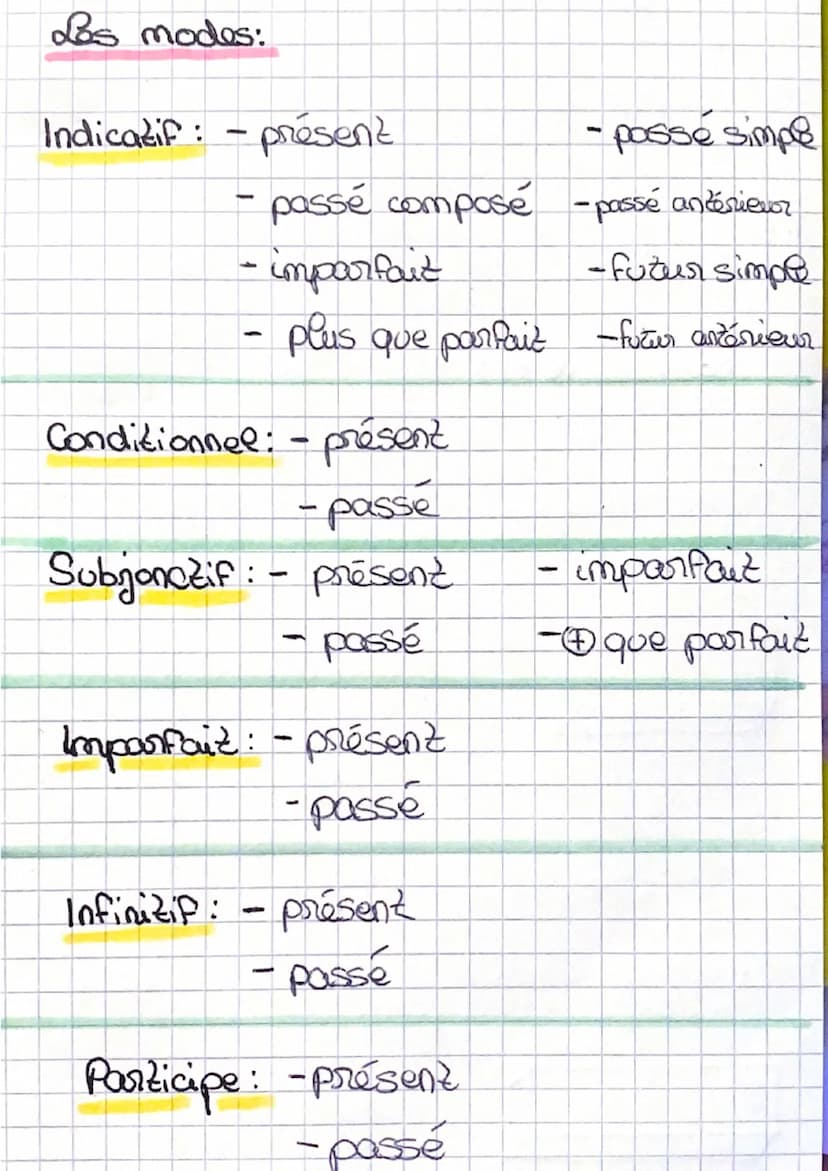 Les modes:
Indicatif : - présent - passé simple
- passé composé - passé antérieur
- imparfait - futur simple
- plus que parfait - futur antérieur
Conditionnel : - présent
- passé
Subjonctif : - présent - imparfait
- passé - ⊕ que parfait
Imparfait : - présent
- passé
Infinitif : - présent
- passé
Participe : - présent
- passé